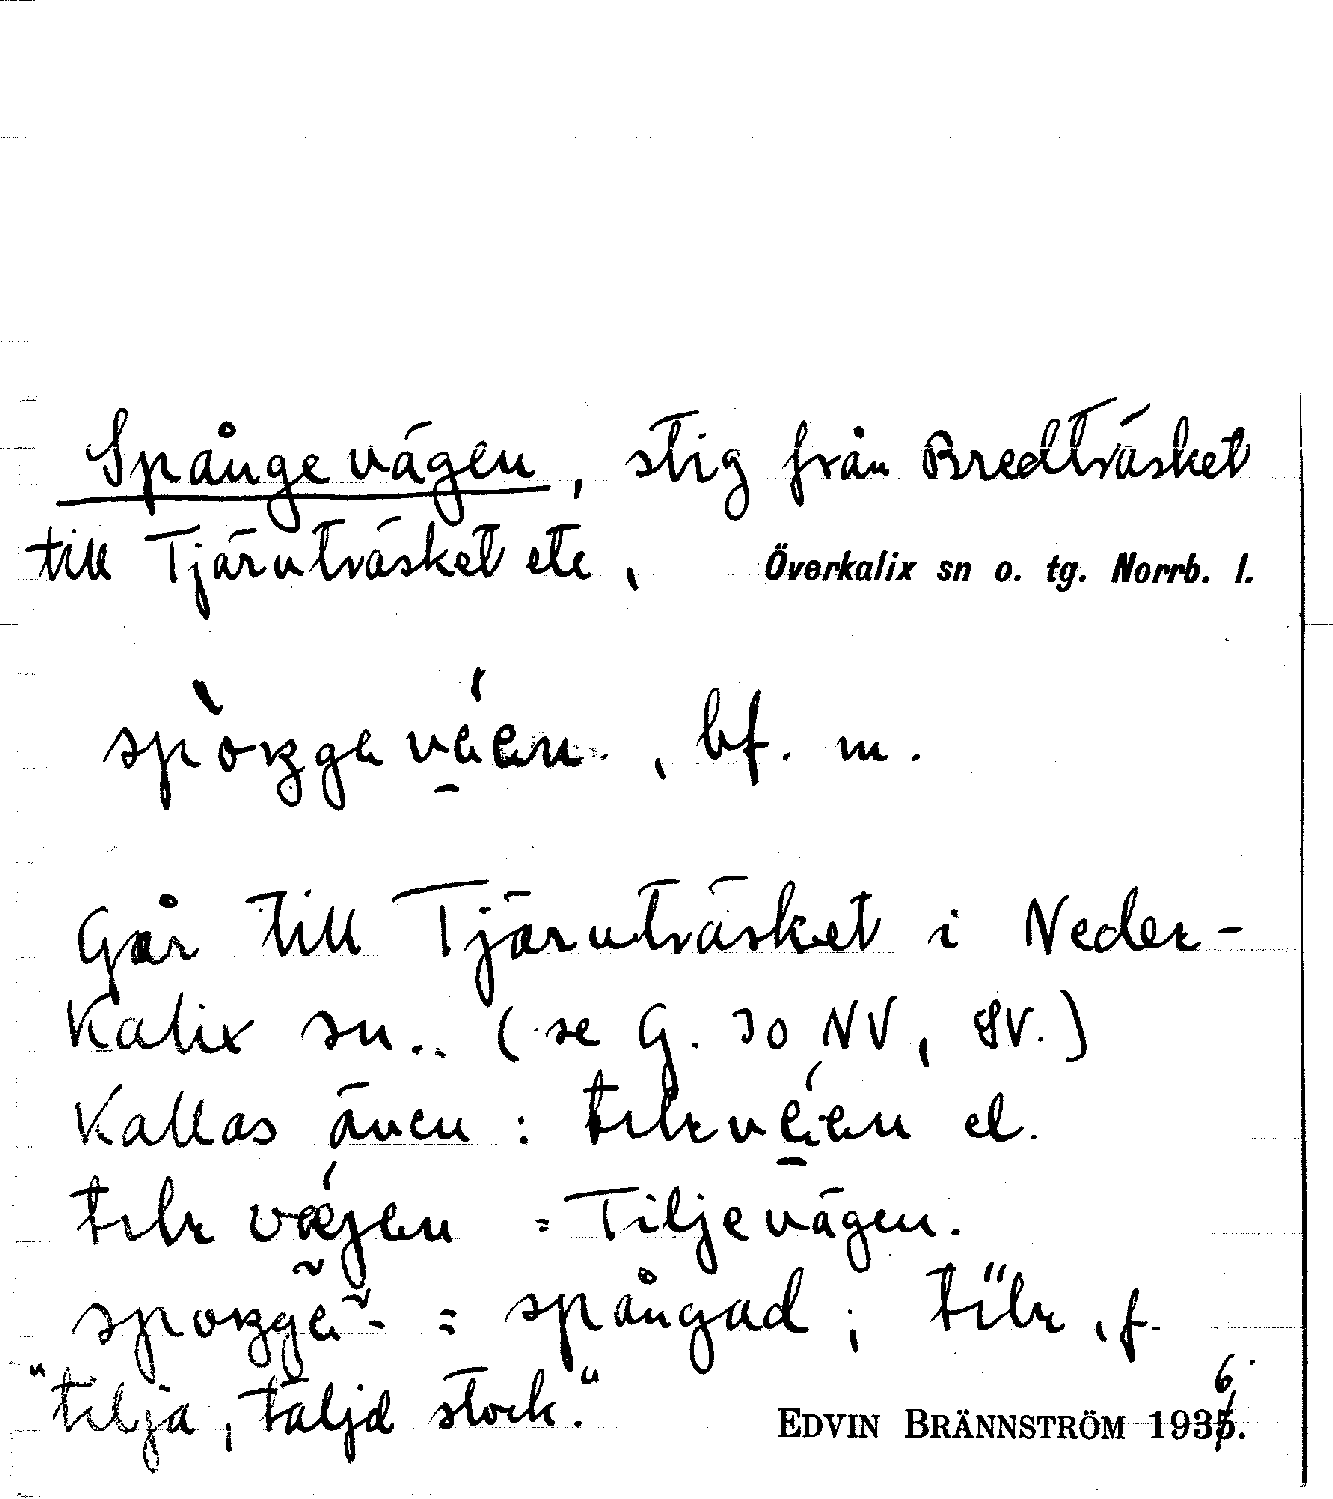 Spångevägen, stig från Bredträsket
till Tjäruträsket etc, Överkalix sn o. tg. Norrb. l.
bf. m.
Går till Tjäruträsket i Neder-
Kalix sn. (se G. 30 NV, SV.)
Kallas även: el.
= Tiljevägen.
= spångad; f.
"tilja, täljd stock."
EDVIN BRÄNNSTRÖM 1936.